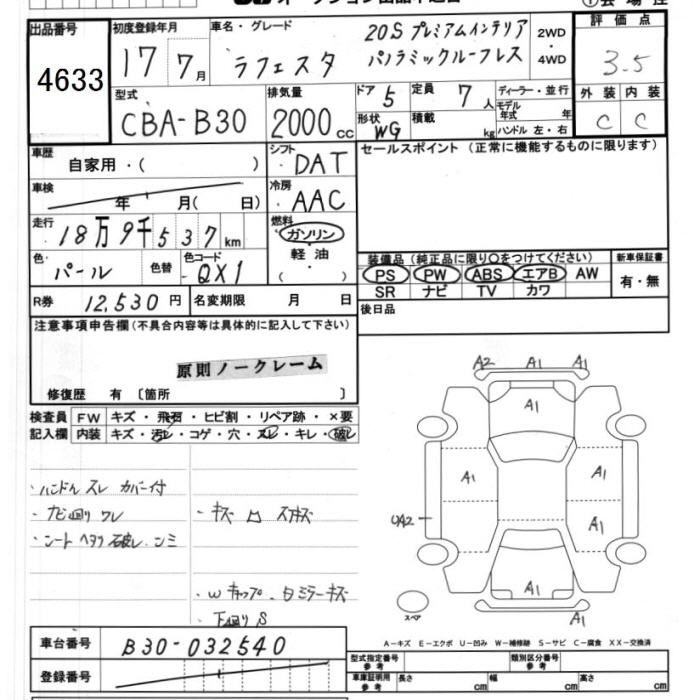 出品番号
4633
初度登録年月
17 7月
車名・グレード
ラフェスタ
20S プレミアムインテリア
パノラミックルーフレス
2WD
・
4WD
評価点
3.5
外装 内装
C C
型式
CBA-B30
排気量
2000cc
ドア 5
形状 WG
定員 7人
積載 kg
ディーラー・並行
モデル年式 年
ハンドル 左・右
車歴
自家用・( )
シフト
DAT
セールスポイント(正常に機能するものに限ります)
車検
年 月( 日)
冷房
AAC
走行
18万9千537km
燃料
ガソリン
・
軽油
色
パール
色替
色コード
QX1
装備品(純正品に限り○をつけてください)
新車保証書
PS PW ABS エアB AW
有・無
SR ナビ TV カワ
R券 12,530円
名変期限 月 日
後日品
注意事項申告欄(不具合内容等は具体的に記入して下さい)
原則ノークレーム
修復歴 有 〔箇所 〕
検査員
記入欄
FW キズ・飛石・ヒビ割・リペア跡・×要
内装 キズ・汚レ・コゲ・穴・スレ・キレ・破レ
・ハンドル スレ カバー付
・ナビ廻り ワレ
・シート ヘタリ 破レ・シミ
・キズ
・Wキャップ
・ミラーキズ
下廻りS
A2 A1 A1
A1
A1 A1
UA2 A1
A1
A1
スペア
A-キズ E-エクボ U-凹み W-補修跡 S-サビ C-腐食 XX-交換済
車台番号
B30-032540
登録番号
型式指定番号
参考
類別区分番号
参考
車庫証明用
参考
長さ cm
幅 cm
高さ cm